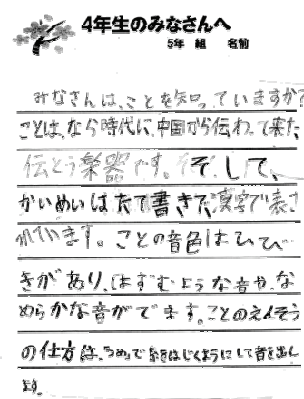 4年生のみなさんへ
5年 組 名前
みなさんは、ことを知っていますか?
ことは、なら時代に、中国から伝わって来た
伝とう楽器です。そして、
がくめいはたて書きで、漢字で表さ
れています。ことの音色はひび
きがあり、はずむような音や、な
めらかな音がでます。ことのえんそう
の仕方は、つめで糸をはじくようにして音を出し
ます。